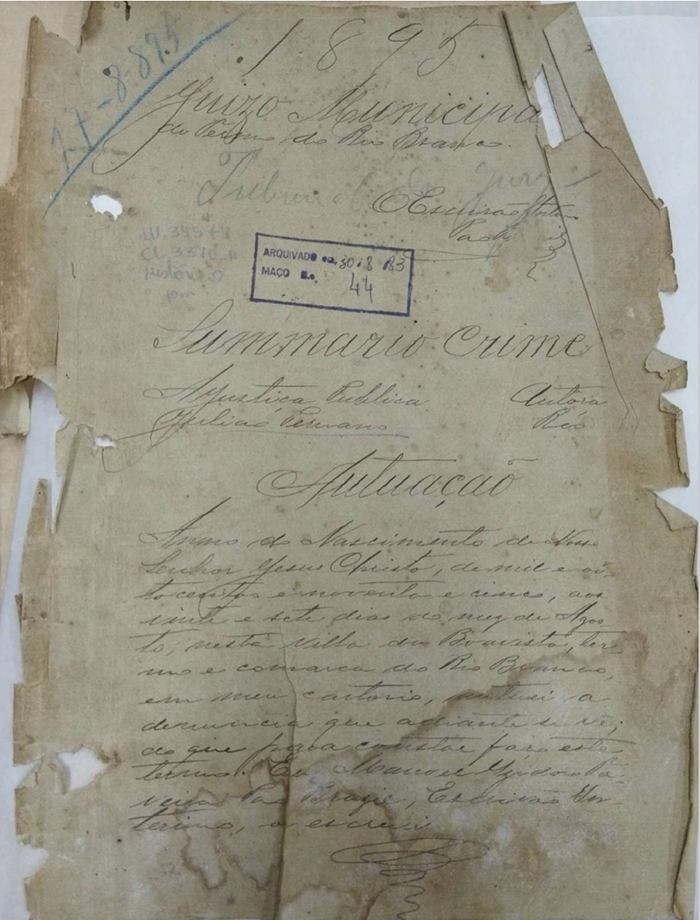 1895
27-8-895
Juizo Municipa
do Termo do Rio Branco.
Tribunal do Jury
O Escrivão Inter
ARQUIVADO em 30/8/83
MAÇO N.o 44
Summario Crime
A Justiça Publica Autora
Réo
Autuação
Anno do Nascimento de Nosso
Senhor Jesus Christo, de mil e oi-
tocentos e noventa e cinco, aos
vinte e sete dias do mez de Agos-
to, nesta villa da Boavista, ter-
mo e comarca do Rio Branco,
em meu cartorio, autuei a
denuncia que adiante se vê;
do que para constar faço este
termo. Eu Manoel Izidoro
Escrivão In-
terino, o escrevi